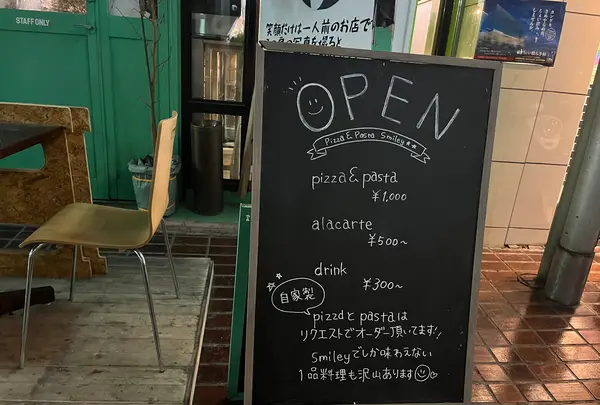 STAFF ONLY
笑顔だけは一人前のお店で
OPEN
Pizza & Pasta Smiley
pizza & pasta
¥1,000
alacarte
¥500~
drink
¥300~
自家製
pizzdと pastaは
リクエストでオーダー頂いてます!!
Smileyでしか味わえない
1品料理も沢山あります